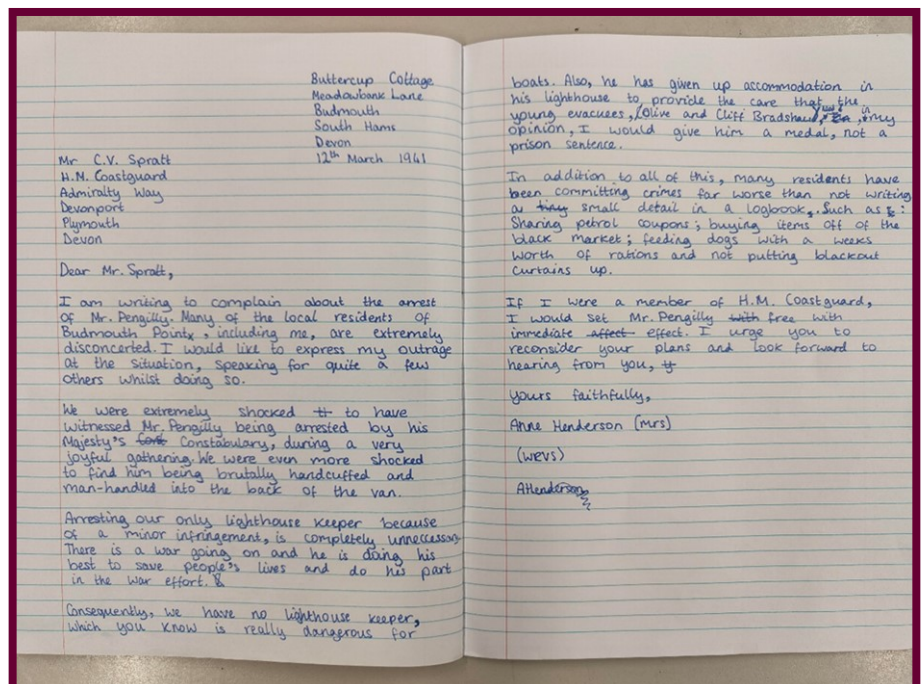 Buttercup Cottage
Meadowbank Lane
Budmouth
South Hams
Devon
12th March 1941
Mr C.V. Spratt
H.M. Coastguard
Admiralty Way
Devonport
Plymouth
Devon
Dear Mr. Spratt,
I am writing to complain about the arrest
of Mr. Pengilly. Many of the local residents of
Budmouth Point, including me, are extremely
disconcerted. I would like to express my outrage
at the situation, speaking for quite a few
others whilst doing so.
We were extremely shocked to have
witnessed Mr. Pengilly being arrested by his
Majesty's Constabulary, during a very
joyful gathering. We were even more shocked
to find him being brutally handcuffed and
man-handled into the back of the van.
Arresting our only lighthouse keeper because
of a minor infringement, is completely unneccessary
There is a war going on and he is doing his
best to save people's lives and do his part
in the war effort.
Consequently, we have no lighthouse keeper,
which you know is really dangerous for
boats. Also, he has given up accommodation in
his lighthouse to provide the care that the
young evacuees, Olive and Cliff Bradshaw, in my
opinion, I would give him a medal, not a
prison sentence.
In addition to all of this, many residents have
been committing crimes far worse than not writing
a tiny small detail in a logbook. Such as:
Sharing petrol coupons; buying items off of the
black market; feeding dogs with a weeks
worth of rations and not putting blackout
curtains up.
If I were a member of H.M. Coastguard,
I would set Mr. Pengilly with free with
immediate affect effect. I urge you to
reconsider your plans and look forward to
hearing from you,
yours faithfully,
Anne Henderson (mrs)
(WRVS)
AHenderson